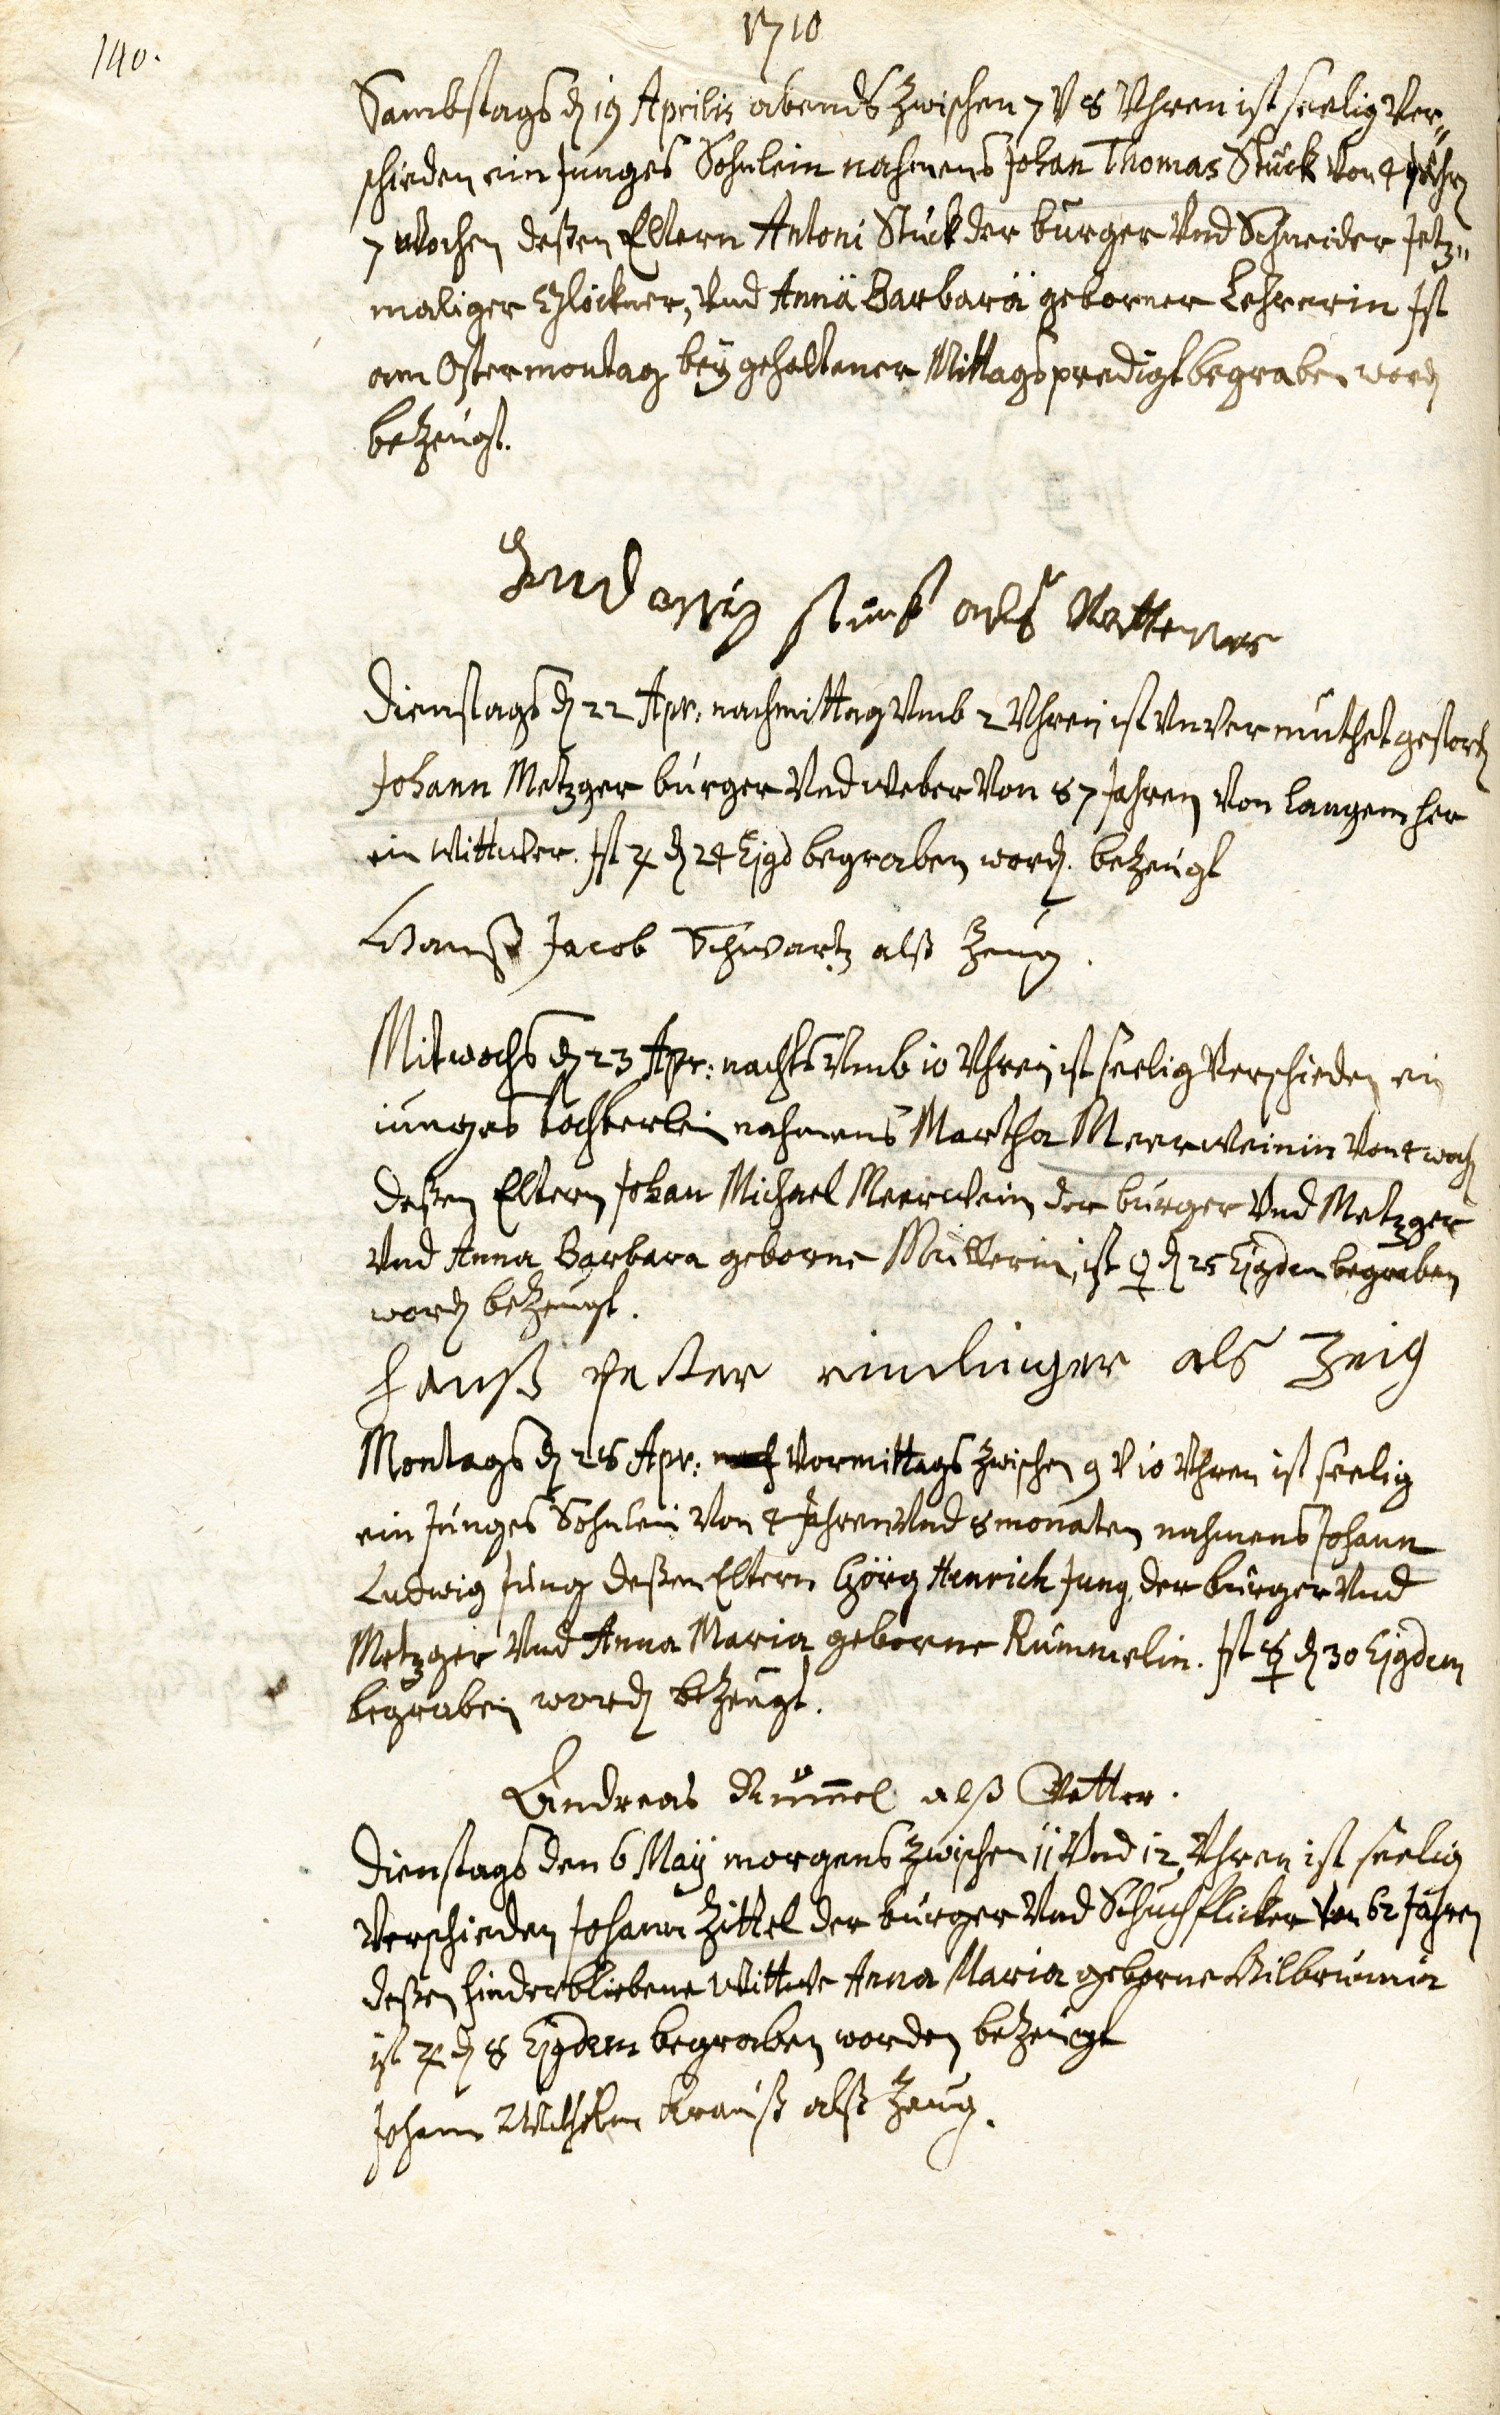 1710
140.
Sambstags d 19 Aprilis abends zwischen 7 V 8 Vhren ist seelig Ver„
schieden ein junges Söhnlein nahmens Johan Thomas Stück Von 4
7 wochen deßen Eltern Antoni Stück der burger Vnd Schneider Jetz„
maliger Glöckner, Vnd Annä Barbarä geborner Lehrerin Ist
am Ostermontag beÿ gehaltener Mittagspredigt begraben word
bezeugt.
Ludowig stuck alß
Dienstags d 22 Apr: nachmittag Vmb 2 Vhren ist Vnvermuthet gestorb
Johann Metzger burger Vnd weber Von 87 Jahren Von langem her
ein Wittwer. Ist ♃ d 24 Ejgd begraben word. bezeugt
Hanß Jacob Schwartz alß Zeug.
Mitwochs d 23 Apr: nachts Vmb 10 Vhren ist seelig Verschieden ein
junges töchterlein nahmens Martha Meerweinin Von 4 woch
deßen Eltern Johan Michael Meerwein der burger Vnd Metzger
Vnd Anna Barbara geborne Müllerin, ist ♀ d 25 Ejgdem begraben
word bezeugt.
hanß petter als Zeig
Montags d 28 Apr: Vormittags zwischen 9 V 10 Vhren ist seelig
ein Junges Söhnlein Von 4 Jahren Vnd 8 monaten nahmens Johann
Ludwig Jung deßen Eltern Görg Henrich Jung der burger Vnd
Metzger Vnd Anna Maria geborne Rümmelin. Ist ☿ d 30 Ejgdem
begraben word bezeugt.
Andreas Rüm̅el alß Vetter.
Dienstags den 6 Maÿ morgens zwischen 11 Vnd 12 Vhren ist seelig
Verschieden Johann Zittel der burger Vnd Schuchflicker Von 62 Jahren
deßen hinderbliebene Wittwe Anna Maria geborne
ist ♃ d 8 Ejgdem begraben worden bezeugt
Johann Wilhelm Krauß alß Zeug.